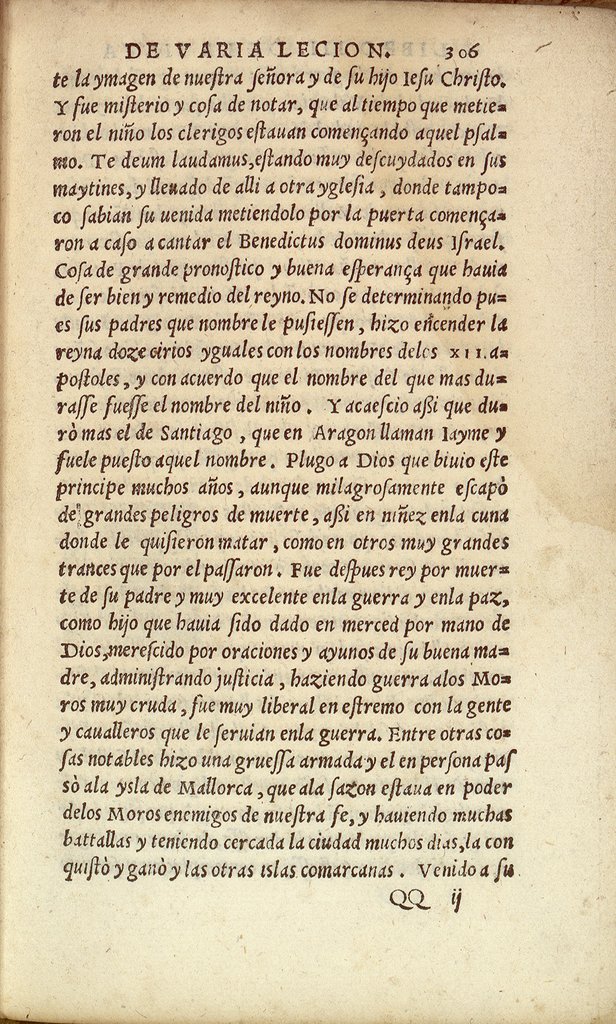 DE VARIA LECION. 306
te la ymagen de nueſtra ſeñora y de ſu hijo Ieſu Chriſto.
Y fue miſterio y coſa de notar, que al tiempo que metie=
ron el niño los clerigos eſtauan començando aquel pſal=
mo. Te deum laudamus, eſtando muy deſcuydados en ſus
maytines, y lleuado de alli a otra ygleſia, donde tampo=
co ſabian ſu uenida metiendolo por la puerta comença=
ron a caſo a cantar el Benedictus dominus deus Iſrael.
Coſa de grande pronoſtico y buena eſperança que hauia
de ſer bien y remedio del reyno. No ſe determinando pu=
es ſus padres que nombre le puſieſſen, hizo encender la
reyna doze cirios yguales con los nombres delos XII. a=
poſtoles, y con acuerdo que el nombre del que mas du=
raſſe fueſſe el nombre del niño. Y acaeſcio aßi que du=
rò mas el de Santiago, que en Aragon llaman Iayme y
fuele pueſto aquel nombre. Plugo a Dios que biuio eſte
principe muchos años, aunque milagroſamente eſcapò
de grandes peligros de muerte, aßi en niñez enla cuna
donde le quiſieron matar, como en otros muy grandes
trances que por el paſſaron. Fue deſpues rey por muer=
te de ſu padre y muy excelente enla guerra y enla paz,
como hijo que hauia ſido dado en merced por mano de
Dios, mereſcido por oraciones y ayunos de ſu buena ma=
dre, adminiſtrando juſticia, haziendo guerra alos Mo=
ros muy cruda, fue muy liberal en eſtremo con la gente
y caualleros que le ſeruian enla guerra. Entre otras co=
ſas notables hizo una grueſſa armada y el en perſona paſ
sò ala ysla de Mallorca, que ala ſazon eſtaua en poder
delos Moros enemigos de nueſtra fe, y hauiendo muchas
battallas y teniendo cercada la ciudad muchos dias, la con
quiſtò y ganò y las otras islas comarcanas. Venido a ſu
QQ ij